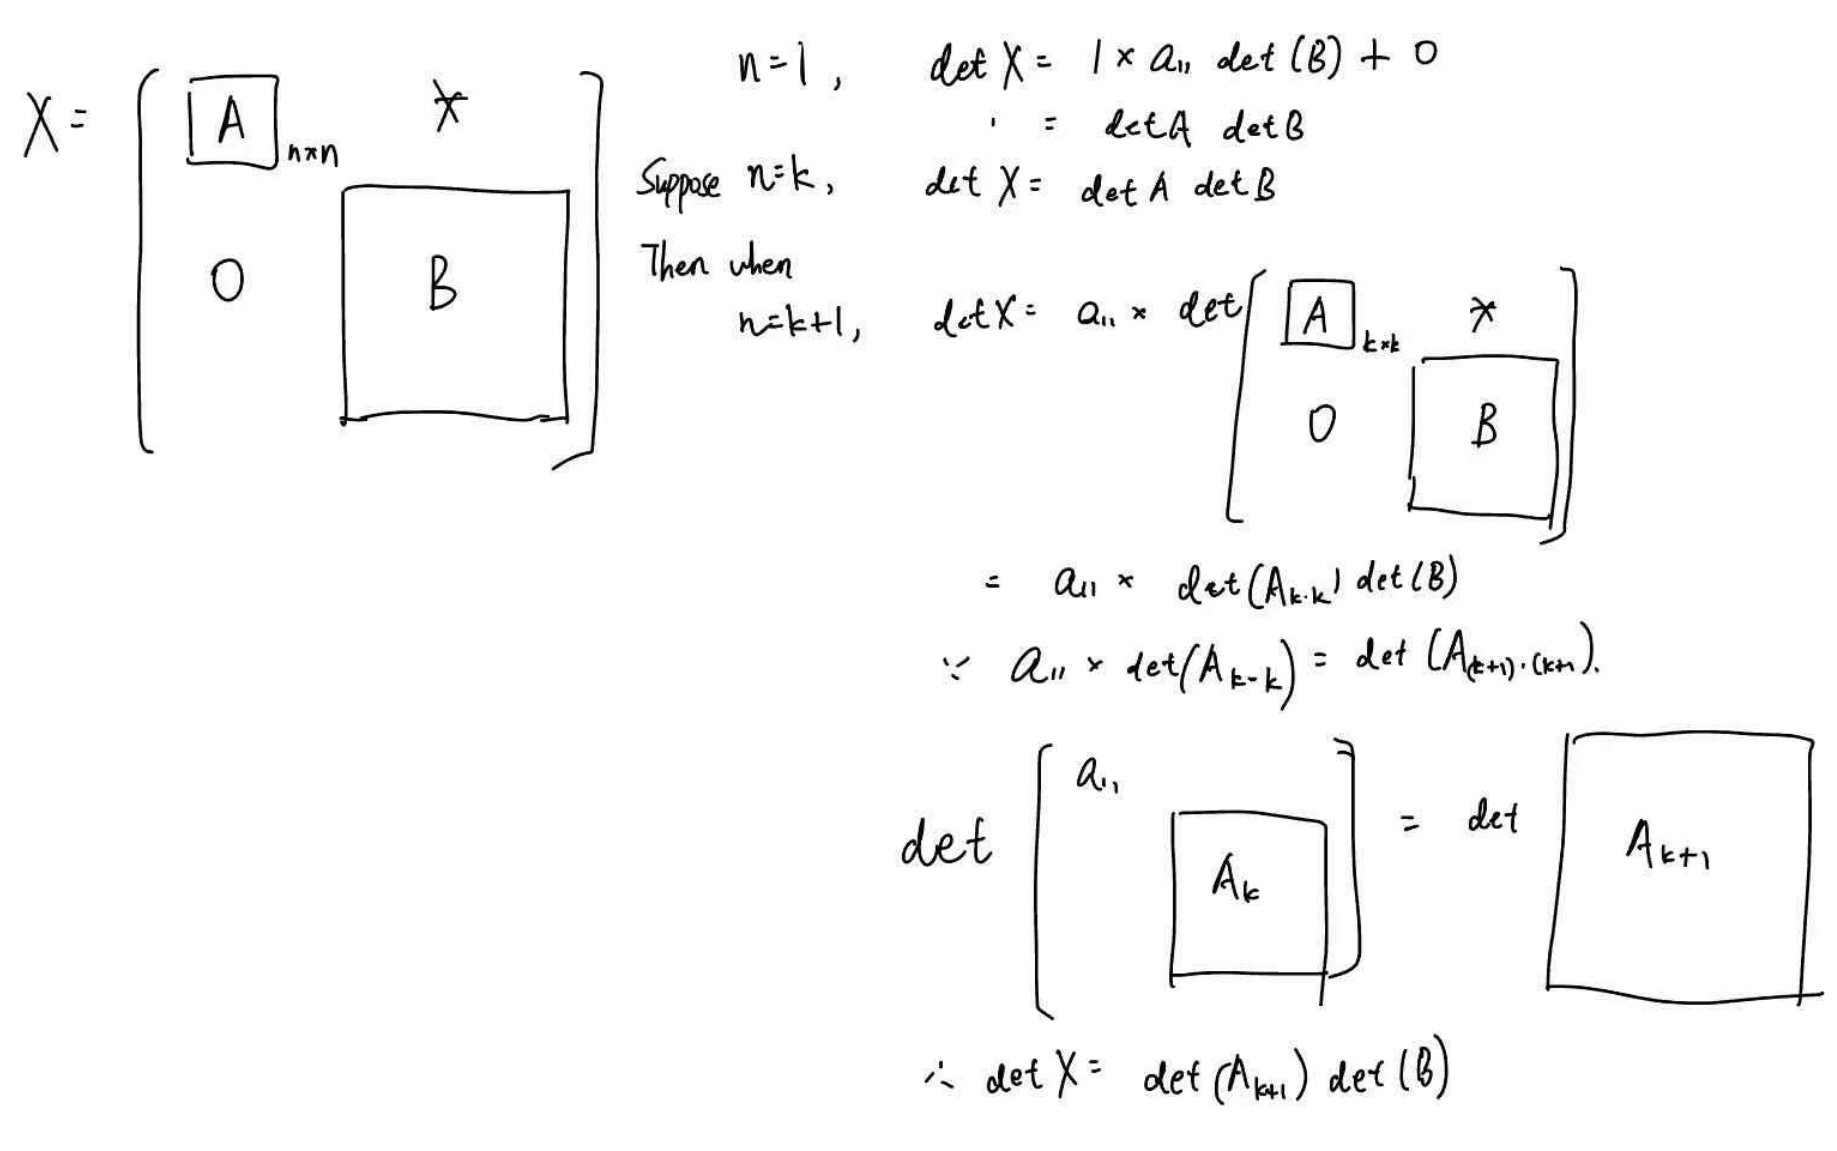 X = [ A n×n * 0 B ]
n=1, det X = 1 × a₁₁ det (B) + 0
= det A det B
Suppose n=k, det X = det A det B
Then when
n=k+1, det X = a₁₁ × det [ A k×k * 0 B ]
= a₁₁ × det(A k·k) det(B)
∵ a₁₁ × det(A k-k) = det (A (k+1)·(k+1).
det [ a₁₁ A k ] = det A k+1
∴ det X = det (A k+1) det (B)